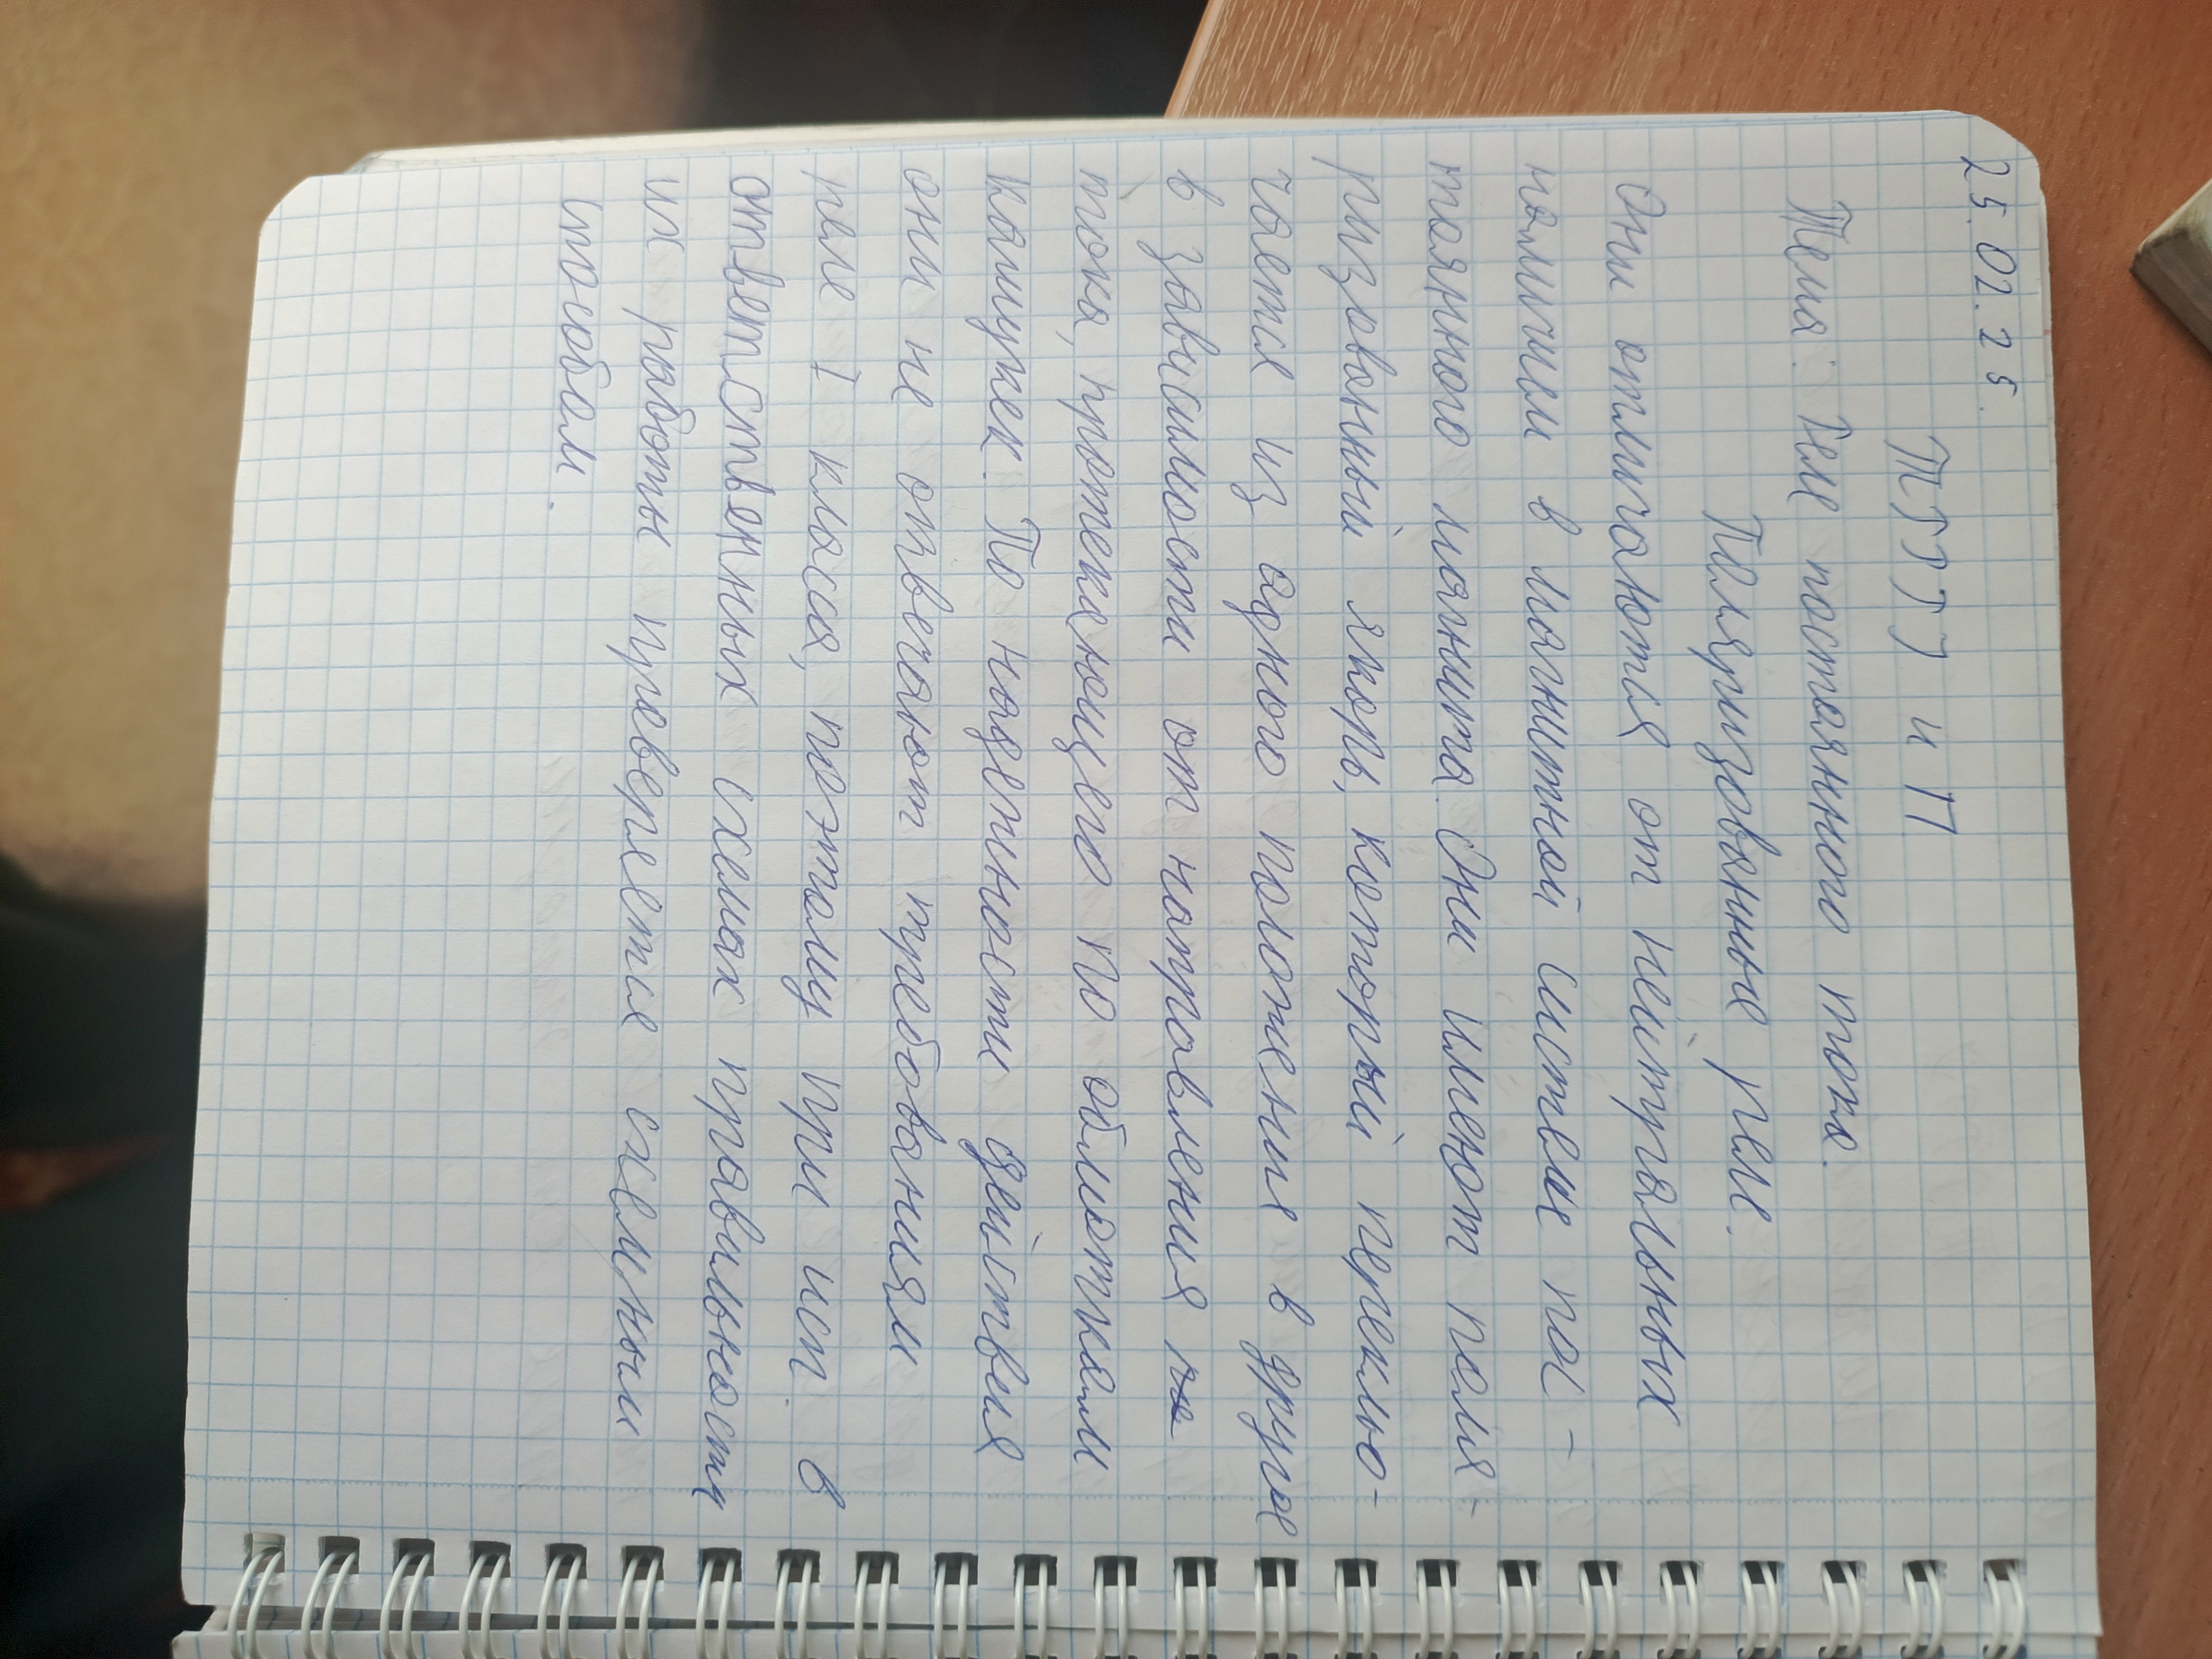 25.02.25.
ТГГТЭ и П
Тема: Реле постоянного тока.
Поляризованные реле.
Они отличаются от нейтральных
наличием в магнитной системе пос-
тоянного магнита. Они имеют поля-
ризованный якорь, который переклю-
чается из одного положения в другое
в зависимости от направления
тока, протекающего по обмоткам
катушек. По надежности действия
они не отвечают требованиям
реле I класса, поэтому при исп. в
ответственных схемах правильность
их работы проверяется схемным
способом.